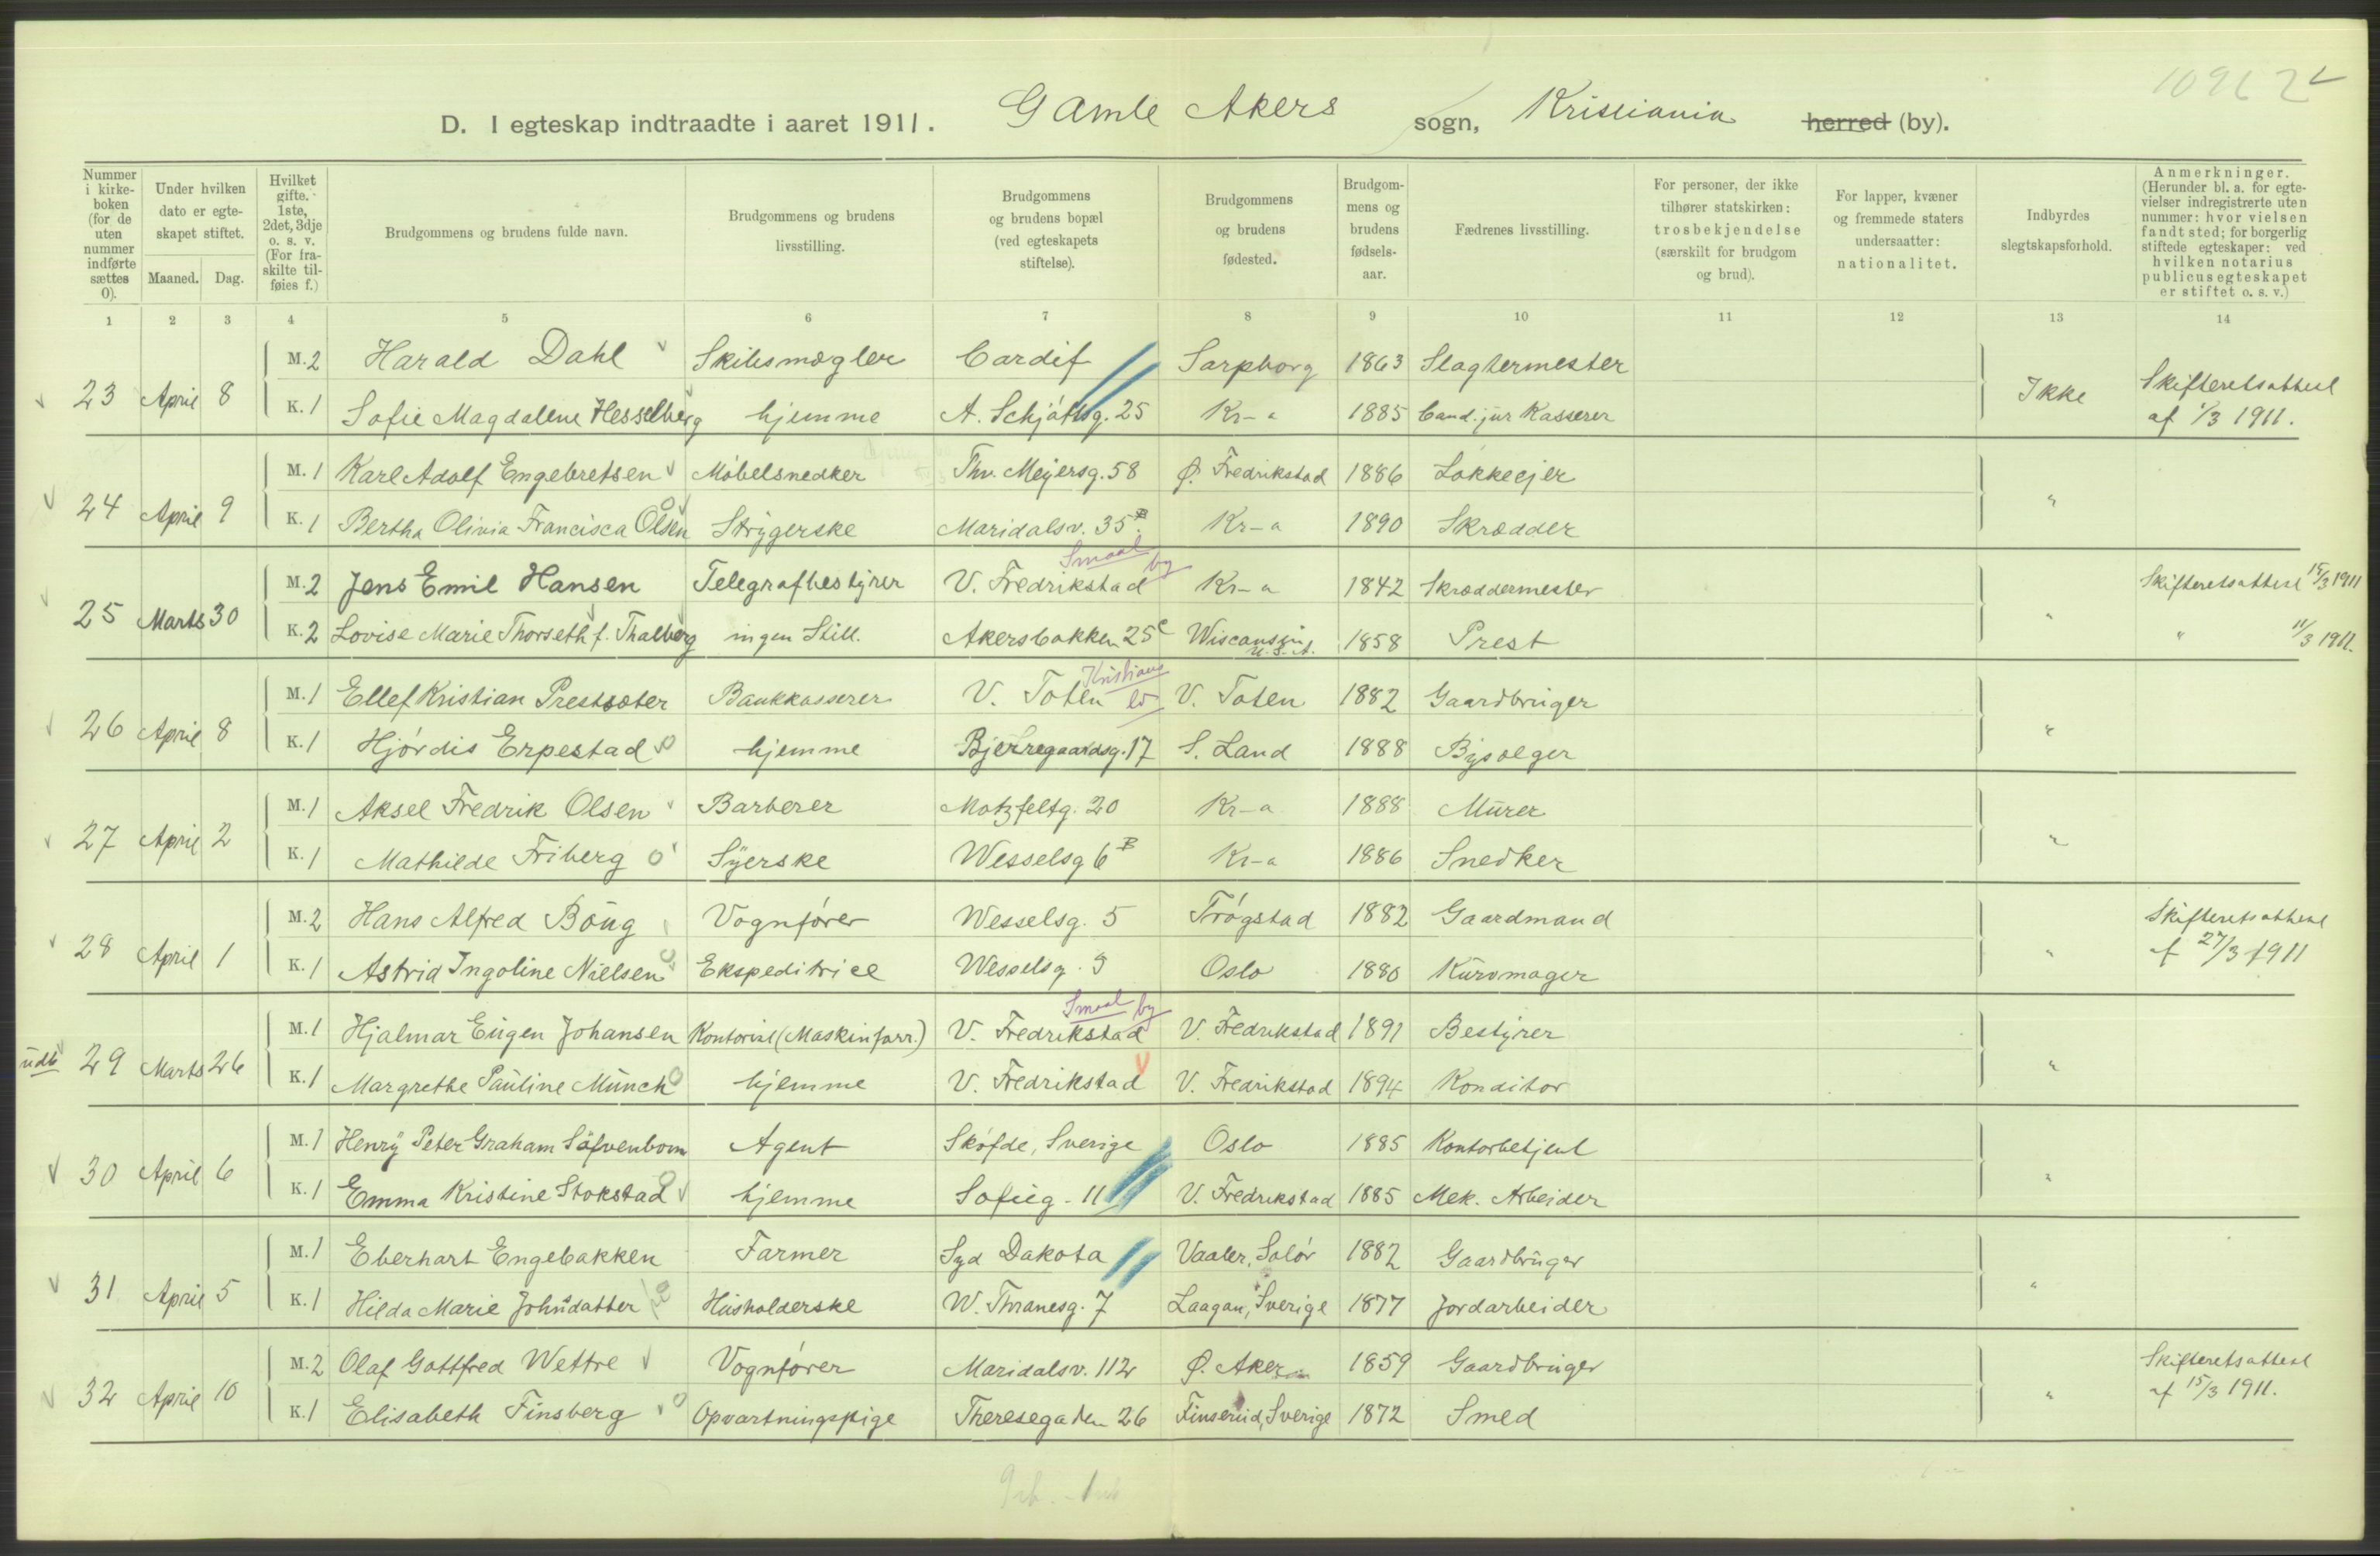 10962
D. I egteskap indtraadte i aaret 1911. Gamle Akers sogn, Kristiania herred (by).
Nummer i kirkeboken (for de uten nummer indførte sættes 0).
Under hvilken dato er egteskapet stiftet.
Maaned. Dag.
Hvilket gifte. 1ste, 2det, 3dje o. s. v. (For fraskilte tilføies f.)
Brudgommens og brudens fulde navn.
Brudgommens og brudens livsstilling.
Brudgommens og brudens bopæl (ved egteskapets stiftelse).
Brudgommens og brudens fødested.
Brudgommens og brudens fødselsaar.
Fædrenes livsstilling.
For personer, der ikke tilhører statskirken: trosbekjendelse (særskilt for brudgom og brud).
For lapper, kvæner og fremmede staters undersaatter: nationalitet.
Indbyrdes slegtskapsforhold.
Anmerkninger. (Herunder bl. a. for egtevielser indregistrerte uten nummer: hvor vielsen fandt sted; for borgerlig stiftede egteskaper: ved hvilken notarius publicus egteskapet er stiftet o. s. v.)
1 2 3 4 5 6 7 8 9 10 11 12 13 14
23 April 8 M. 2 Harald Dahl Skibsmægler Cardif Sarpborg 1863 Slagtermester Ikke Skifteretsattest
K. 1 Sofie Magdalene Hesselberg hjemme A. Schjøttsg. 25 Kr-a 1885 Cand. jur Kasserer af 1/3 1911.
24 April 9 M. 1 Karl Adolf Engebretsen Møbelsnedker Thv. Meyersg. 58 Ø. Fredrikstad 1886 Løkkeejer "
K. 1 Bertha Olivia Francisca Olsen Strygerske Maridalsv. 35 B. Kr-a 1890 Skrædder
Smaal by
25 Marts 30 M. 2 Jens Emil Hansen Telegrafbestyrer V. Fredrikstad Kr-a 1842 Skræddermester " Skifteretsattest 15/3 1911
K. 2 Lovise Marie Thorseth f. Thalberg ingen Still. Akersbakken 25 c Wisconsin U.S.A. 1858 Prest " 11/3 1911.
Kristians
26 April 8 M. 1 Ellef Kristian Prestsæter Bankkasserer V. Toten V. Toten 1882 Gaardbruger "
K. 1 Hjørdis Erpestad hjemme Bjerregaardsg. 17 S. Land 1888 Bysælger
27 April 2 M. 1 Aksel Fredrik Olsen Barberer Motzfeltg. 20 Kr-a 1888 Murer "
K. 1 Mathilde Friberg Syerske Wesselsg 6 B Kr-a 1886 Snedker
28 April 1 M. 2 Hans Alfred Böug Vognfører Wesselsg. 5 Trøgstad 1882 Gaardmand " Skifteretsattest
K. 1 Astrid Ingoline Nielsen Ekspeditrice Wesselsg. 5 Oslo 1880 Kurvmager f 27/3 1911
Smaal by
udb 29 Marts 26 M. 1 Hjalmar Eugen Johansen Kontorist (Maskinforr.) V. Fredrikstad V. Fredrikstad 1891 Bestyrer "
K. 1 Margrethe Pauline Münch hjemme V. Fredrikstad V. Fredrikstad 1894 Konditor
30 April 6 M. 1 Henry Peter Graham Söfvenbom Agent Skøfde, Sverige Oslo 1885 Kontorbetjent "
K. 1 Emma Kristine Stokstad hjemme Sofieg - 11 V. Fredrikstad 1885 Mek. Arbeider
31 April 5 M. 1 Eberhart Engebakken Farmer Syd Dakota Vaaler, Solør 1882 Gaardbruger "
K. 1 Hilda Marie Johnsdatter Husholderske W. Thranesg. 7 Laagan, Sverige 1877 Jordarbeider
32 April 10 M. 2 Olaf Gottfred Wettre Vognfører Maridalsv. 112 Ø. Aker 1859 Gaardbruger " Skifteretsattest
K. 1 Elisabeth Finsberg Opvartningspige Theresegaden 26 Finserud, Sverige 1872 Smed af 15/3 1911.